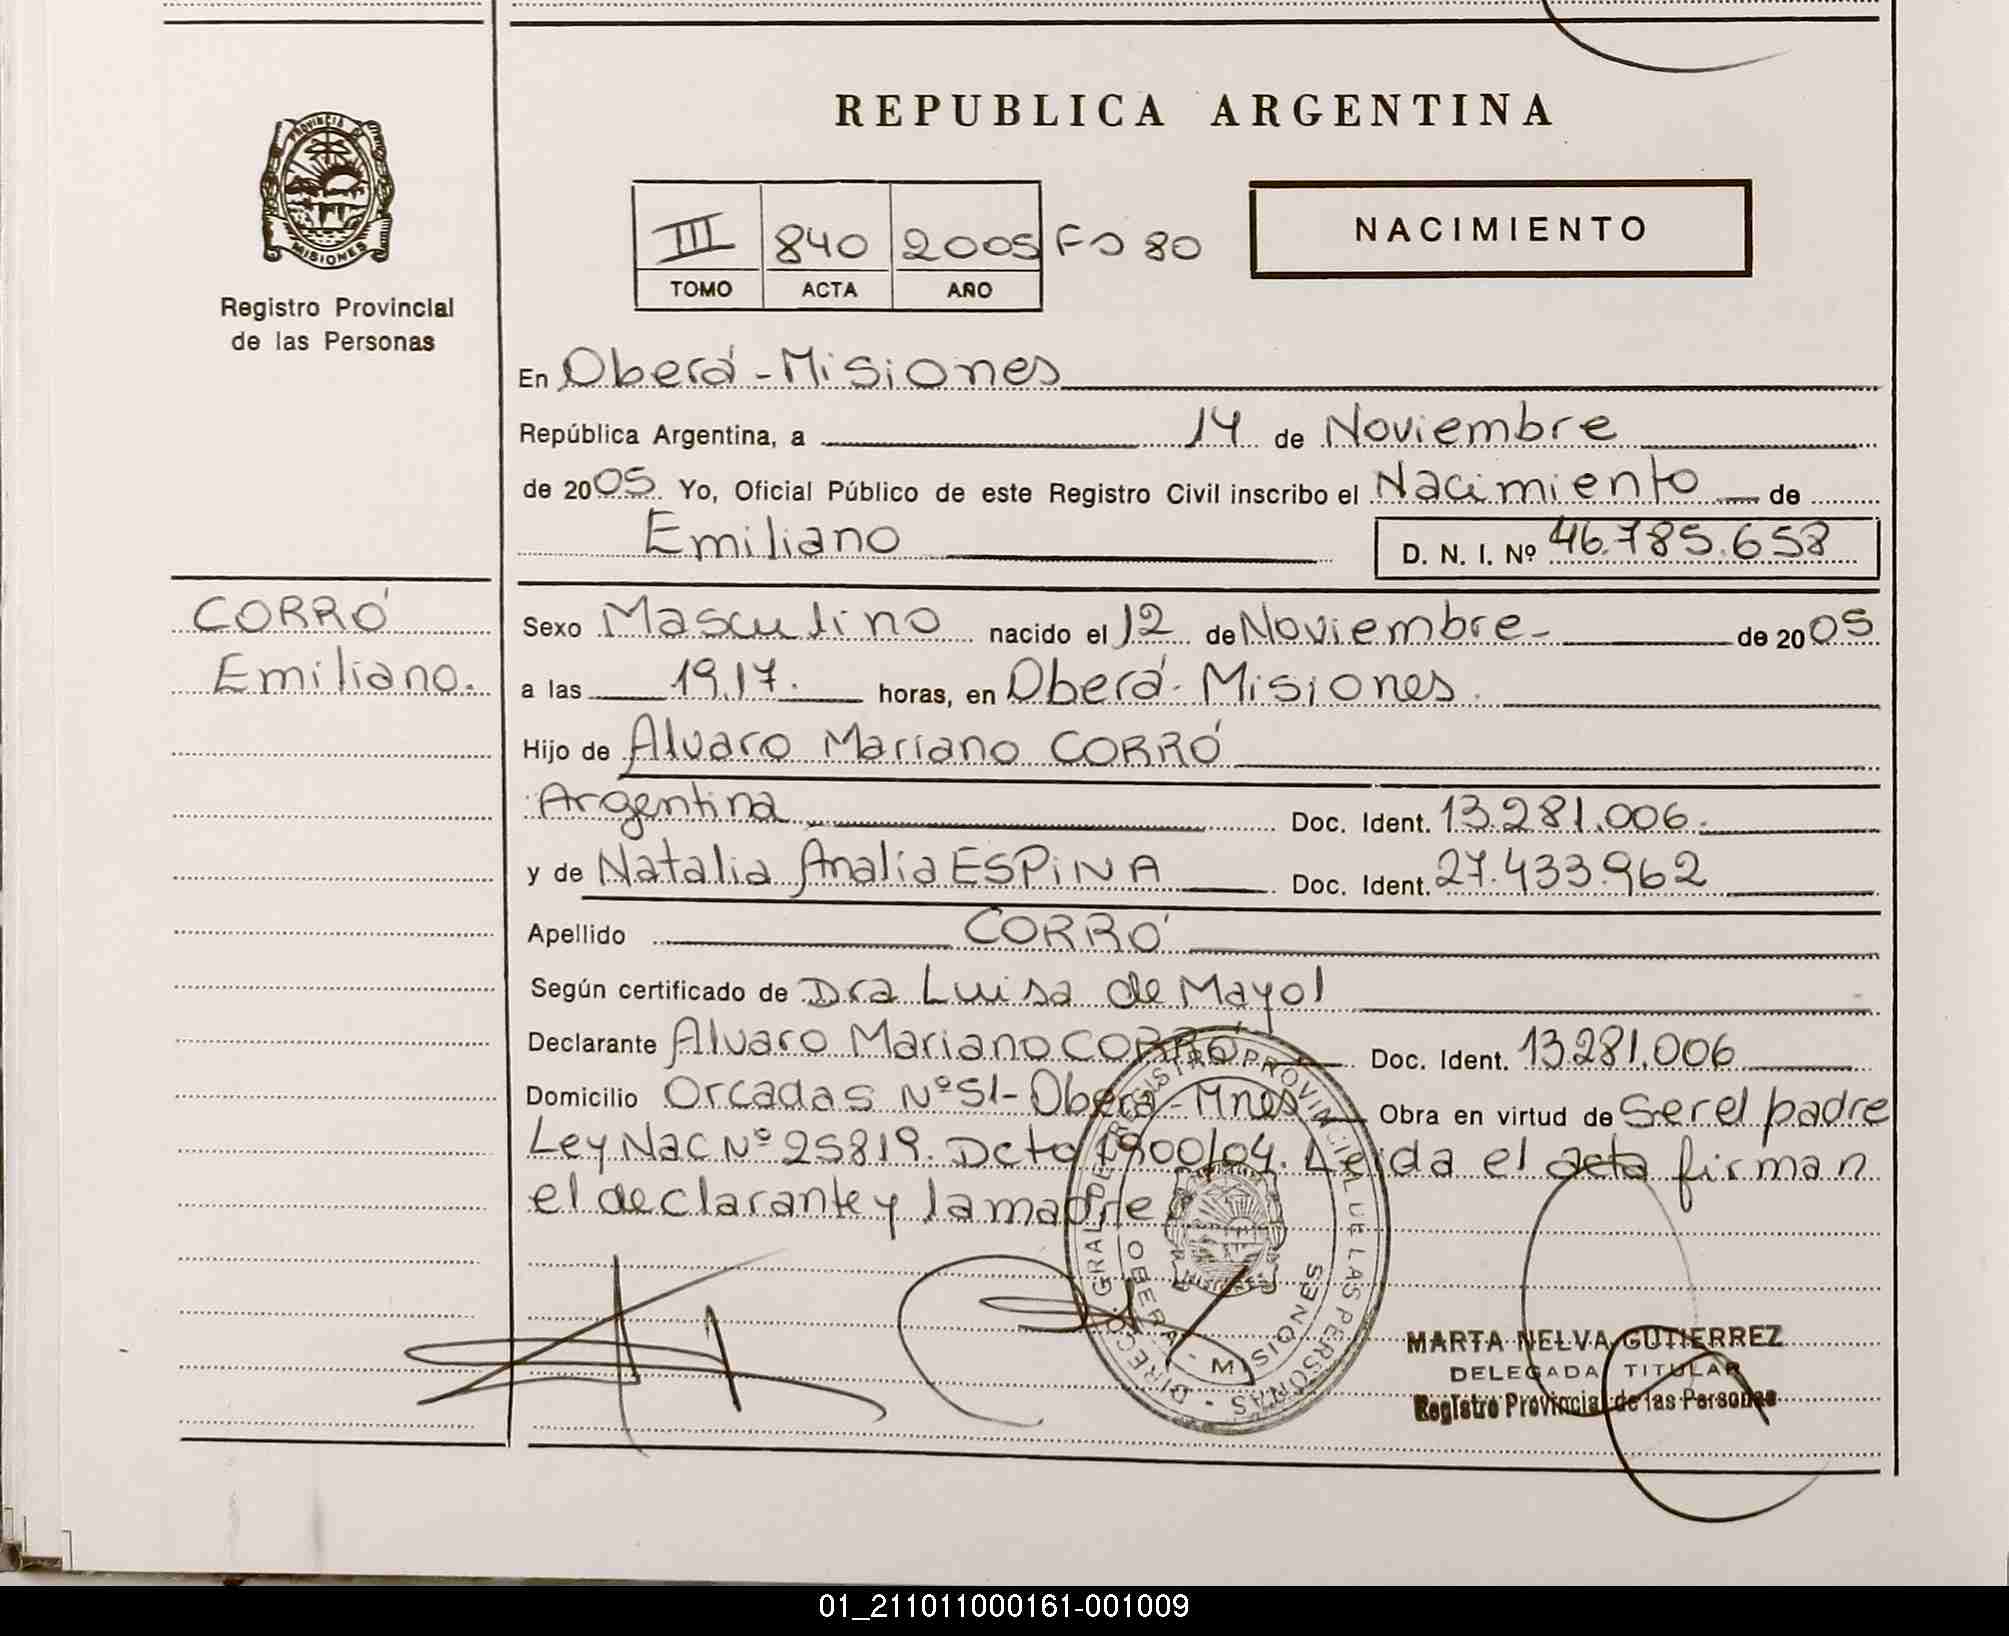 REPUBLICA ARGENTINA
PROVINCIA DE
MISIONES
Registro Provincial
de las Personas
III 840 2005 Fº 80
TOMO ACTA AÑO
NACIMIENTO
En Oberá - Misiones
República Argentina, a 14 de Noviembre
de 2005. Yo, Oficial Público de este Registro Civil inscribo el Nacimiento de
Emiliano D. N. I. Nº 46.785.658
CORRÓ
Emiliano.
Sexo Masculino nacido el 12 de Noviembre - de 2005
a las 19.17. horas, en Oberá - Misiones.
Hijo de Alvaro Mariano CORRÓ
Argentina Doc. Ident. 13.281.006.
y de Natalia Analia ESPINA Doc. Ident. 27.433.962
Apellido CORRÓ
Según certificado de Dra Luisa de Mayol
Declarante Alvaro Mariano CORRÓ Doc. Ident. 13.281.006
Domicilio Orcadas Nº 51 - Oberá - Mnes Obra en virtud de Ser el padre
Ley Nac Nº 25819. Dcto 1900/04. Leida el acta firman
el declarante y la madre
DIRECC. GRAL. DE REGISTRO PROVINCIAL DE LAS PERSONAS
OBERA - MISIONES
MISIONES
MARTA NELVA GUTIERREZ
DELEGADA TITULAR
Registro Provincial de las Personas
01_211011000161-001009